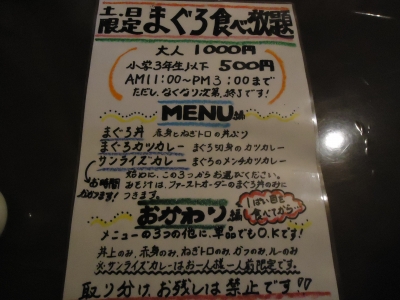 土、日
限定 まぐろ食べ放題
大人 1000円
小学3年生以下 500円
AM11:00〜PM3:00まで
ただし、なくなり次第、終了です!
MENU編
まぐろ丼 赤身とねぎトロの丼ぶり
まぐろカツカレー まぐろ切身のカツカレー
サンライズカレー まぐろのメンチカツカレー
お時間かかります!
始めに、この3つからお選びください。
みそ汁は、ファーストオーダーのまぐろ丼のみにつきます。
おかわり編
1ぱい目を食べてから…
メニューの3つの他に、単品でもO.Kです!
丼上のみ、赤身のみ、ねぎトロのみ、カツのみ、ルーのみ
※サンライズカレーはお一人様一人前限定です。
取り分け、お残しは禁止です!!